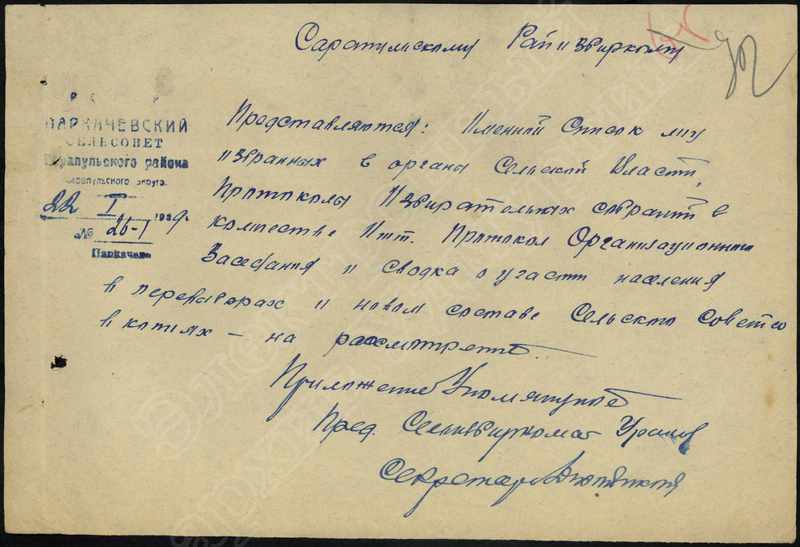 Сарапульскому Райизбиркому
ПАРКАЧЕВСКИЙ
СЕЛЬСОВЕТ
Сарапульского района
Сарапульского округа.
22 I 1929 г.
№ 26-1
Паркачево
Представляются: Именной Список лиц
избранных в органы Сельской Власти,
Протоколы Избирательных собраний в
количестве Протокол Организационного
Заседания и сводка о участи населения
в перевыборах и новом составе Сельского Совета
в копиях — на рассмотрение.
Приложение Упомянутое
Пред. Сельизбиркома
Секретарь